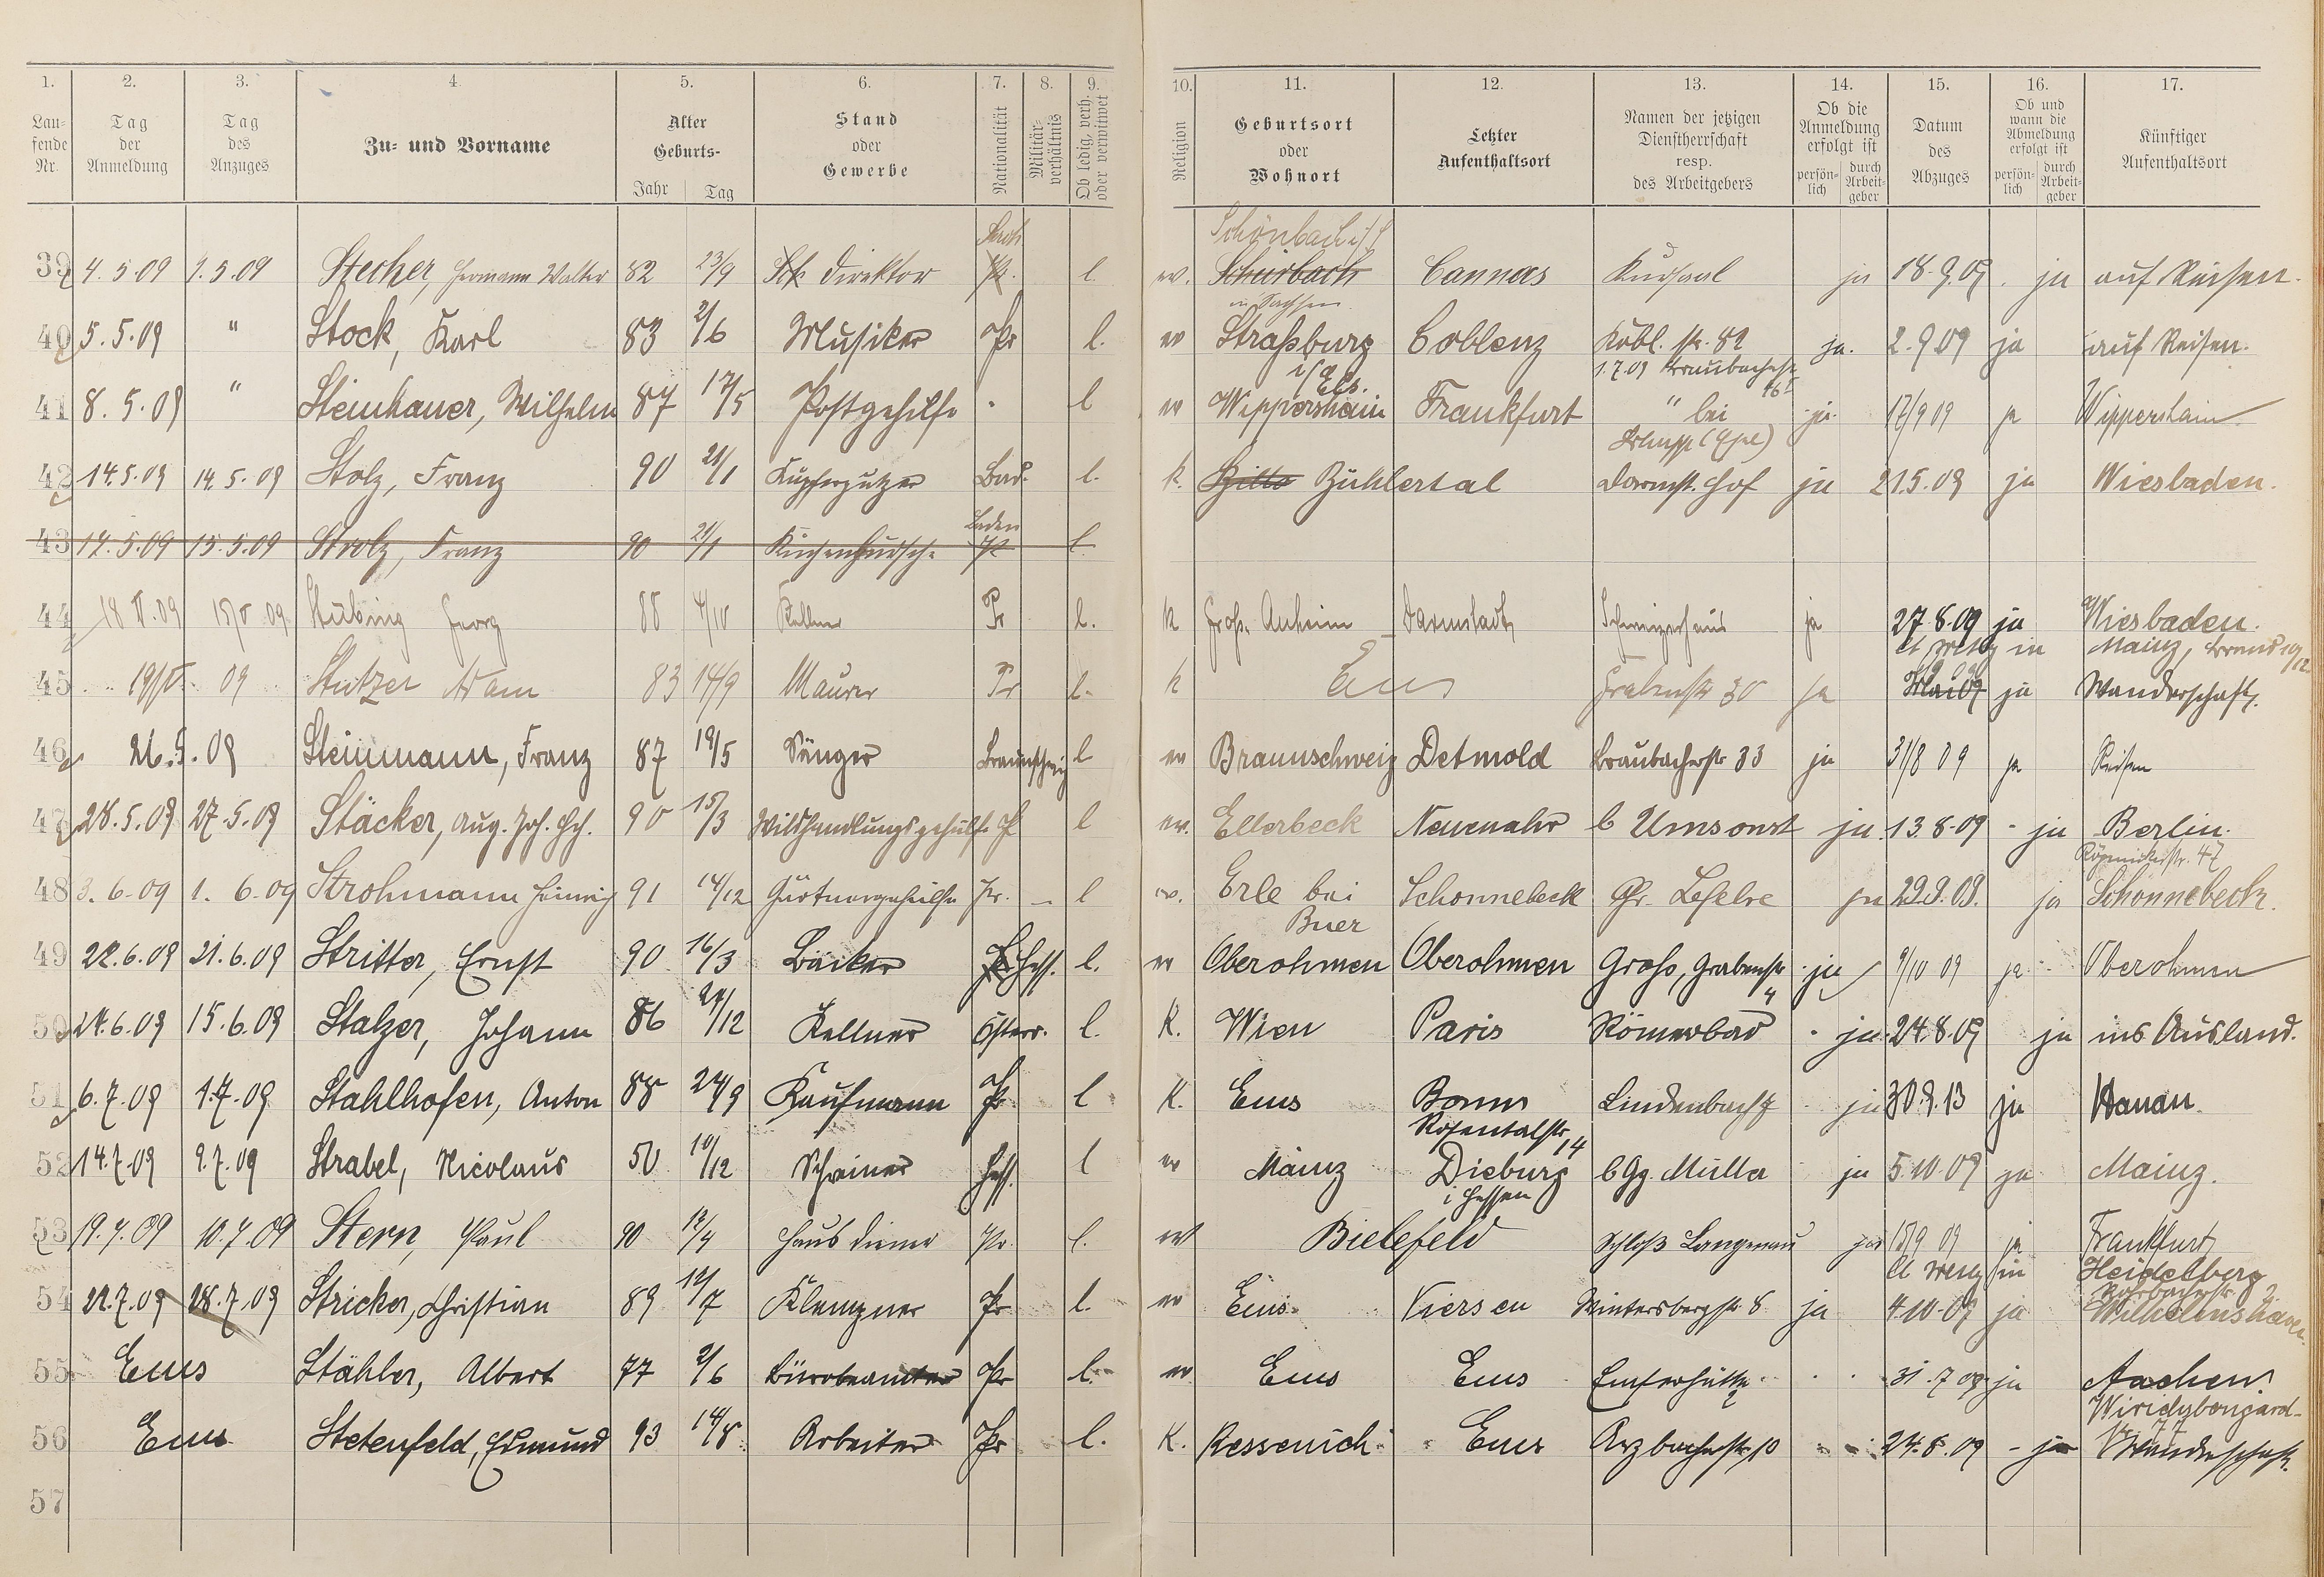 1. 2. 3. 4. 5. 6. 7. 8. 9. 10. 11. 12. 13. 14. 15. 16. 17.
Lau-
fende
Nr.
Tag
der
Anmeldung
Tag
des
Anzuges
Zu- und Vorname
Alter
Geburts-
Jahr Tag
Stand
oder
Gewerbe
Nationalität
Militär-
verhältnis
Ob ledig, verh.
oder verwitwet
Religion
Geburtsort
oder
Wohnort
Letzter
Aufenthaltsort
Namen der jetzigen
Dienstherrschaft
resp.
des Arbeitgebers
Ob die
Anmeldung
erfolgt ist
persön-
lich
durch
Arbeit-
geber
Datum
des
Abzuges
Ob und
wann die
Abmeldung
erfolgt ist
persön-
lich
durch
Arbeit-
geber
Künftiger
Aufenthaltsort
Schönbach i/S
39 4.5.09 1.5.09 Stecher, Hermann Walter 82 23/9 Direktor l. ev. Schürbach Cannes Kursaal ja 18.9.09. ja auf Reisen.
in Sachsen
40 5.5.09 " Stock, Karl 83 2/6 Musiker Pr l. ev Straßburg Coblenz Kobl. str. 82 ja. 2.9.09 ja auf Reisen.
i/Els. 1.7.09
41 8.5.09 " Steinhauer, Wilhelm 87 17/5 Postgehilfe " l ev Wippershain Frankfurt " bei ja 17/9 09 ja Wippershain
42 14.5.09 14.5.09 Stolz, Franz 90 21/1 Kupferputzer Bad. l. k. Bühlertal Darmst. Hof ja 21.5.09 ja Wiesbaden.
Baden
43 17.5.09 15.5.09 Strolz, Franz 90 21/1 Küchenbursche Pr l.
44 18 V.09 15/V 09 Stübing Georg 88 4/10 Kellner Pr l. k Groß. Auheim Darmstadt Schweizerhaus ja 27.8.09 ja Wiesbaden.
Mainz,
45 19/V 09 Stutzer Adam 83 14/9 Maurer Pr l. k Ems Grabenstr 30 ja ja Wanderschaft.
46 26.5.09 Steinmann, Franz 87 19/5 Sänger Braunschweig l ev Braunschweig Detmold Braubacherstr 33 ja 31/8 09 ja Reisen
47 28.5.09 27.5.09 Stäcker, Aug. Joh. Hch. 90 15/3 Wildhandlungsgehülfe Pr l ev. Ellerbeck Neuenahr b Umsonst ja. 13.8.09 - ja Berlin.
Köpenickerstr. 47
48 3.6.09 1.6.09 Strohmann Heinrich 91 14/12 Gärtnergehülfe Pr. - l ev. Erle bei Schonnebeck Gr. Lefebre ja 29.9.09. ja Schonnebeck.
Buer
49 22.6.09 21.6.09 Stritter, Ernst 90 16/3 Bäcker Hess. l. ev Oberohmen Oberohmen Groß, Grabenstr ja 9/10 09 ja Oberohmen
4
50 24.6.09 15.6.09 Stalzer, Johann 86 27/12 Kellner Österr. l. K. Wien Paris Römerbad ja 24.8.09 ja ins Ausland.
51 6.7.09 1.7.09 Stahlhofen, Anton 88 24/9 Kaufmann Pr l K. Ems Bonn Lindenbach 7 ja 30.9.13 ja Hanau.
Rosentalstr. 14
52 14.7.09 9.7.09 Strabel, Nicolaus 50 10/12 Schreiner Hess. l ev Mainz Dieburg b Gg. Müller ja 5.10.09 ja Mainz.
i Hessen
53 19.7.09 10.7.09 Stern, Paul 90 12/4 Hausdiener Pr. l. ev Bielefeld Schloß Langenau ja 15/9 09 ja Frankfurt
Heidelberg
54 22.7.09 28.7.09 Stricker, Christian 89 12/7 Klempner Pr l. ev Ems Viersen Wintersbergstr. 8 ja 4.10.09 ja Wilhelmshaven.
55 Ems Stähler, Albert 77 2/6 Bürobeamter Pr l. ev Ems Ems Emserhütte 31.7.09 ja Aachen.
56 Ems Stetenfeld, Edmund 93 14/8 Arbeiter Pr l. K. Kessenich Ems Arzbacherstr 10 24.8.09 - ja Wanderschaft.
57